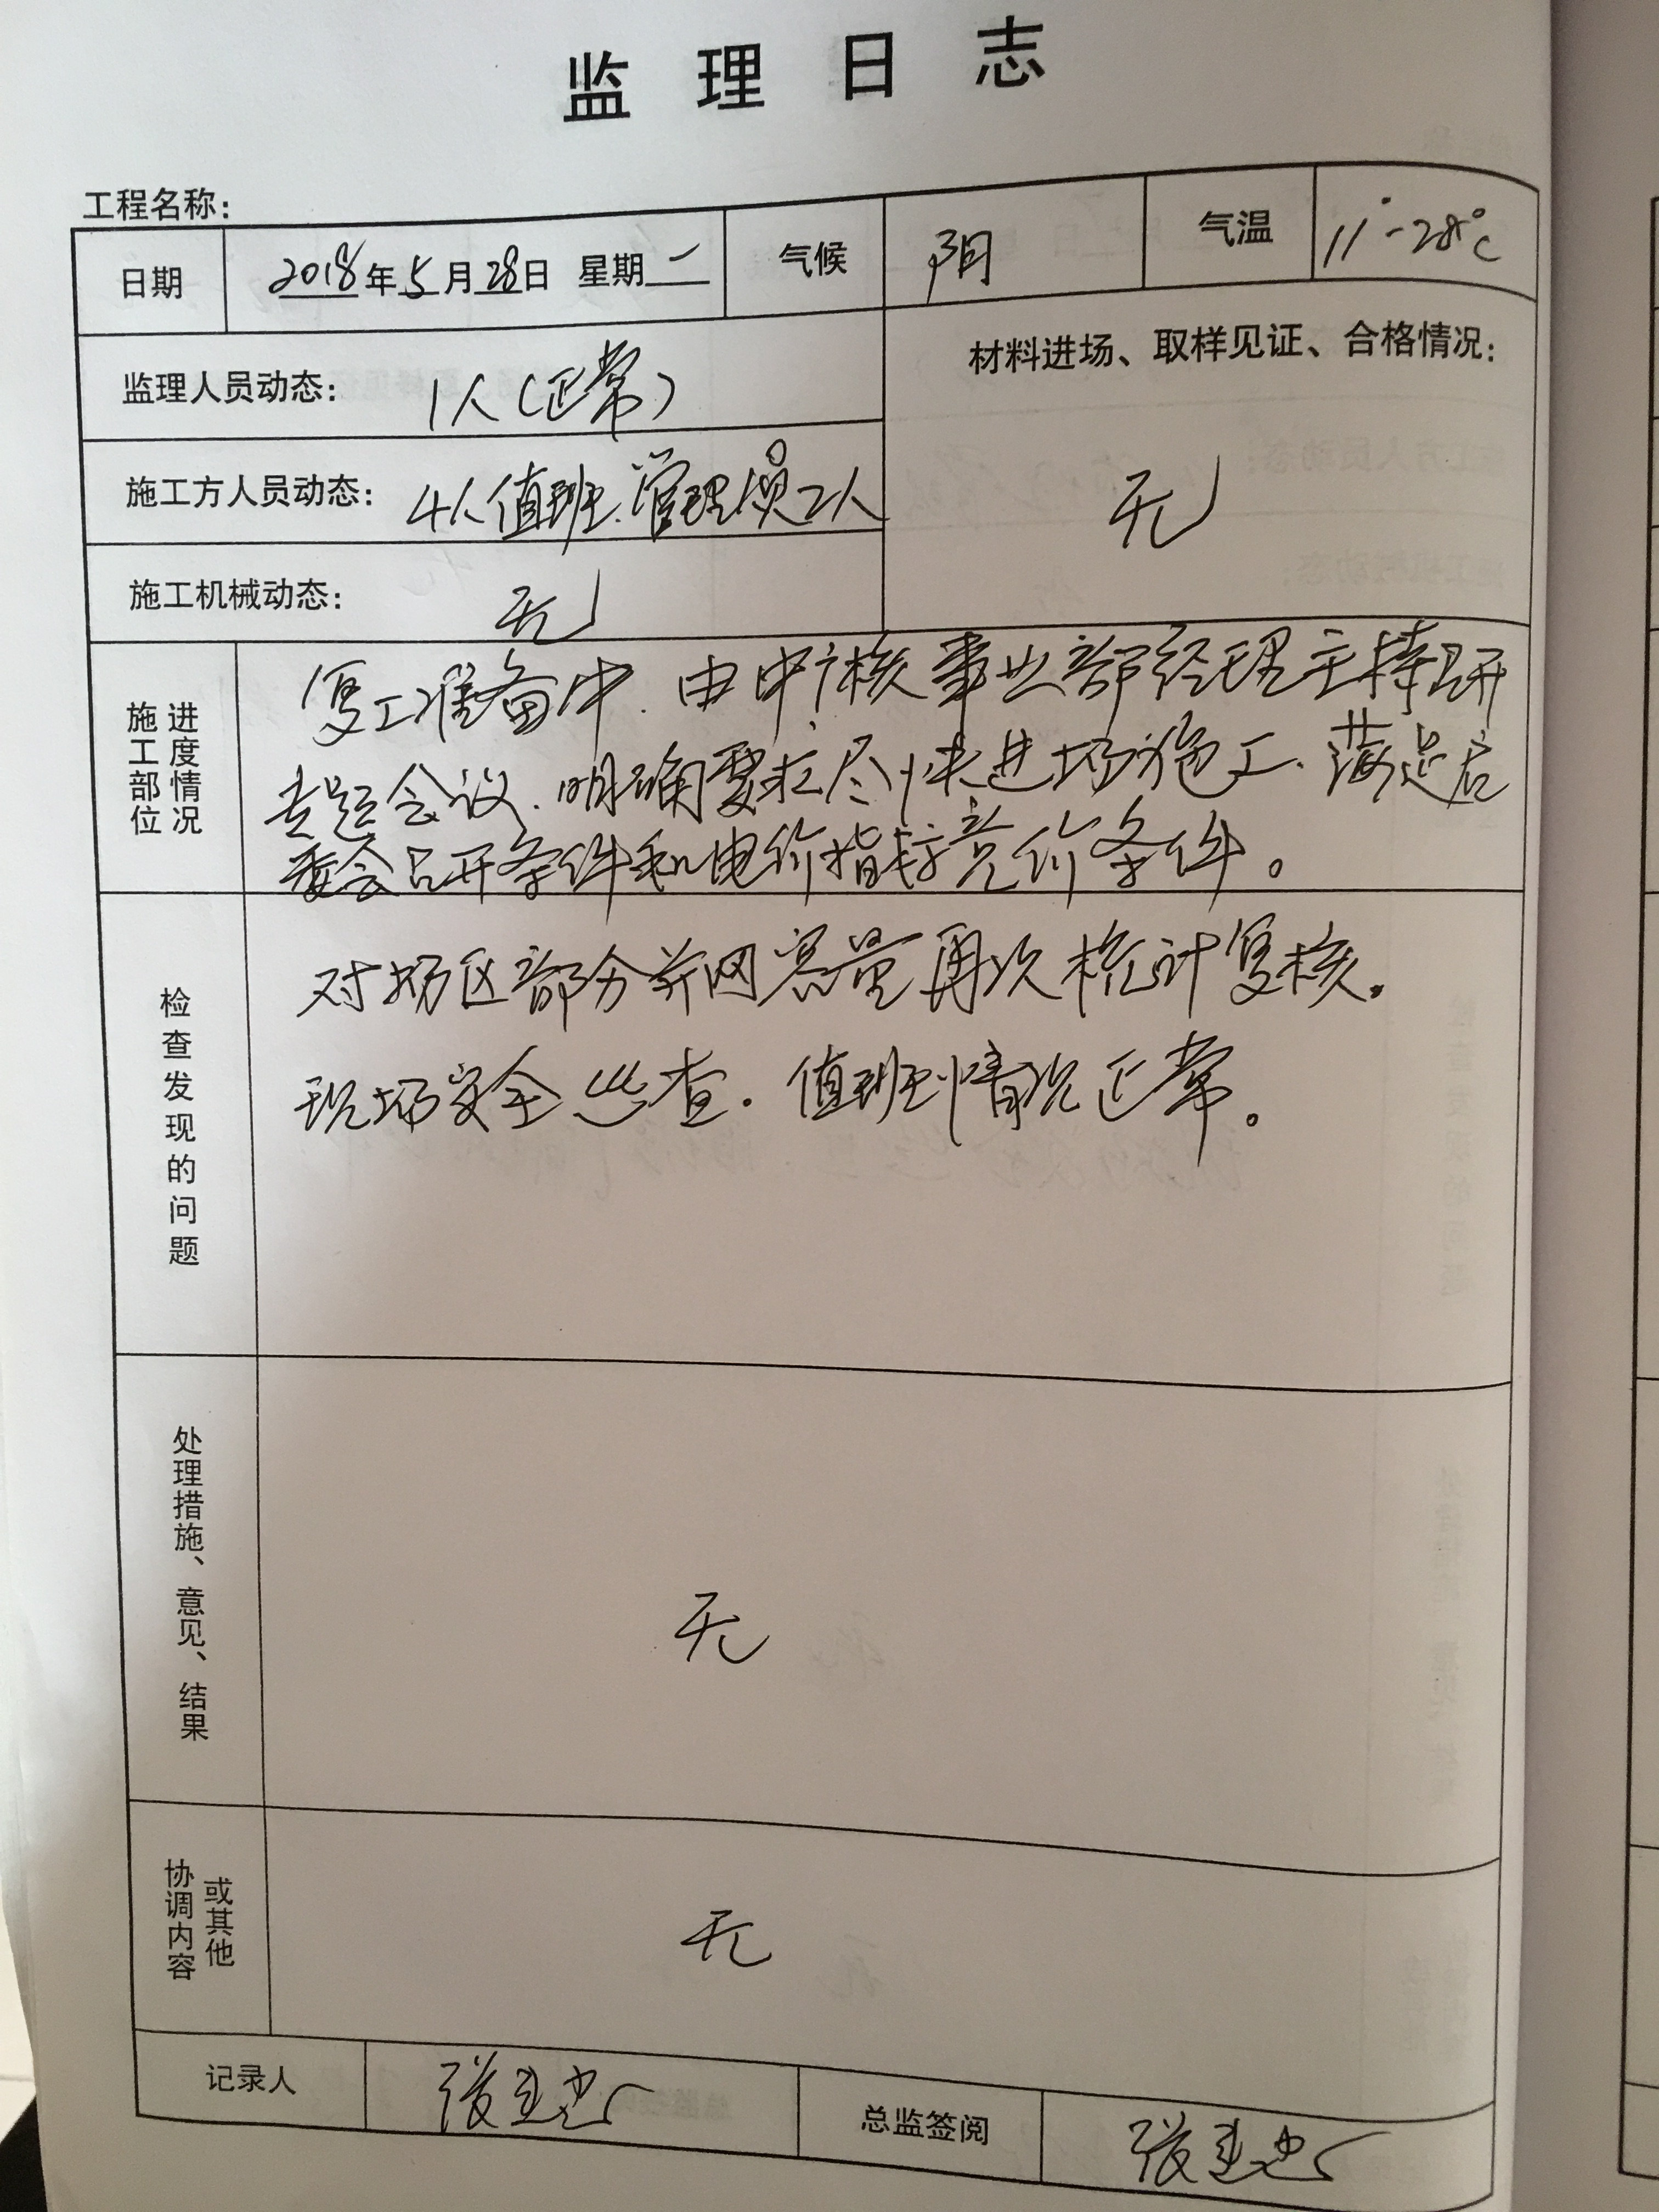 监理日志
工程名称:
日期 2018年5月28日 星期一 气候 阴 气温 11°-28℃
监理人员动态: 1人(正常)
材料进场、取样见证、合格情况:
无
施工方人员动态: 4人值班.管理员2人
施工机械动态: 无
施工部位 进度情况
复工准备中.由中广核事业部经理主持召开
专题会议.明确要求尽快进场施工.满足
委会召开条件和电价指标竞价条件。
检查发现的问题
对场区部分并网容量再次统计复核.
现场安全巡查.值班情况正常。
处理措施、意见、结果
无
协调内容 或其他
无
记录人 张 总监签阅 张